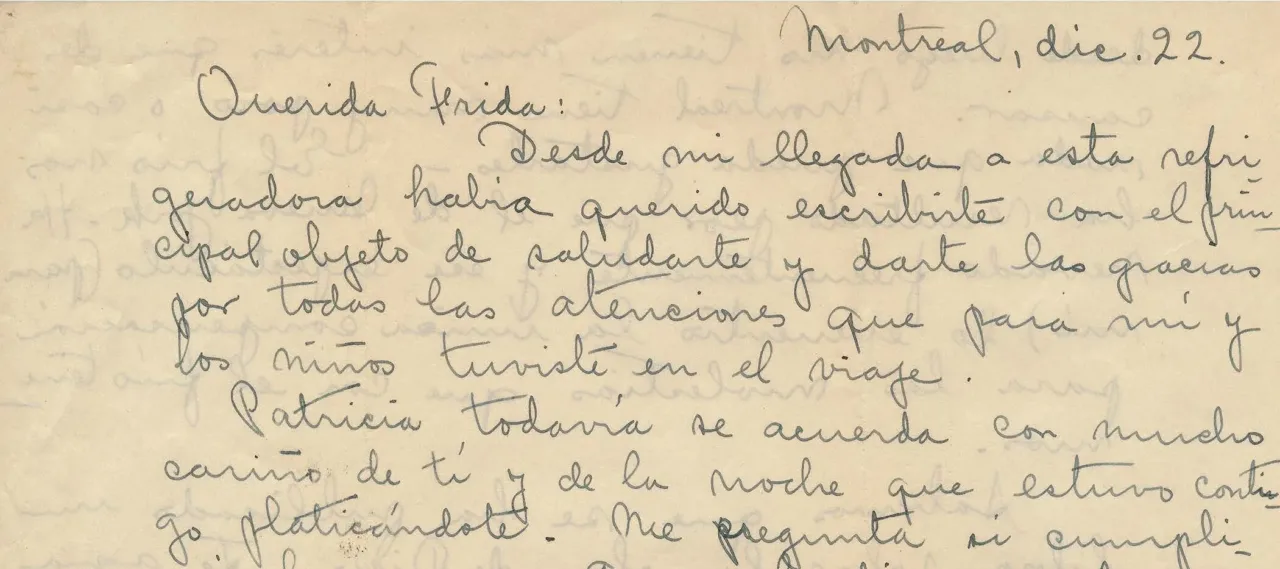 Montreal, dic. 22.
Querida Frida:
Desde mi llegada a esta refri-
geradora habia querido escribirte con el prin-
cipal objeto de saludarte y darte las gracias
por todas las atenciones que para mí y
los niños tuviste en el viaje.
Patricia todavía se acuerda con mucho
cariño de tí y de la noche que estuvo conti-
go platicándote. Me pregunta si cumpli-